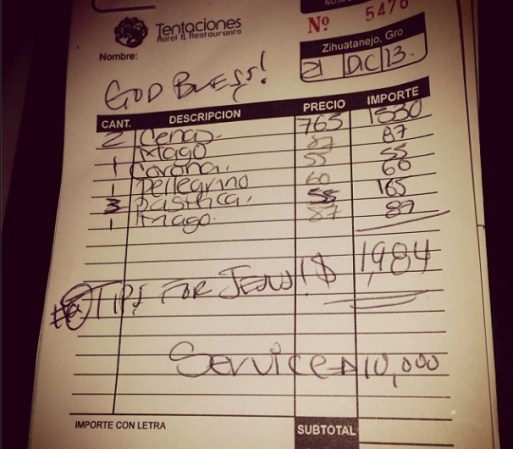 NOTA
Tentaciones
Hotel & Restaurante
Nº 5478
Zihuatanejo, Gro
21 DIC 13
Nombre:
GOD BLESS!
CANT. DESCRIPCION PRECIO IMPORTE
2 Cenas 765 1530
1 Mago 87 87
1 Corona. 55 55
1 Pellegrino 60 60
3 55 165
1 Mago. 87 87
TIPS FOR JESUS! $ 1,984
Service → 10,000
IMPORTE CON LETRA SUBTOTAL